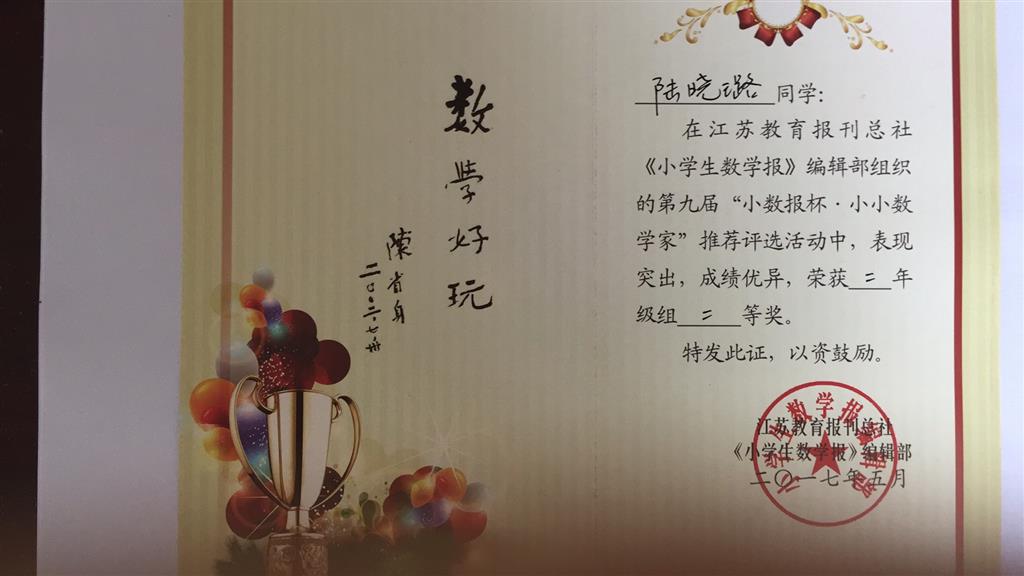 数学好玩
陳省身
陆晓璐同学：
在江苏教育报刊总社
《小学生数学报》编辑部组织
的第九届“小数报杯·小小数
学家”推荐评选活动中，表现
突出，成绩优异，荣获二年
级组二等奖。
特发此证，以资鼓励。
江苏教育报刊总社
《小学生数学报》编辑部
二〇一七年五月
小学生数学报编辑部